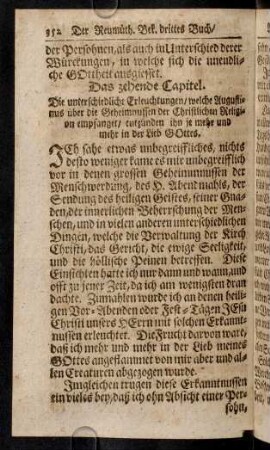 352 Der Reumüth. Bek. drittes Buch/
der Persohnen, als auch in Unterschied derer
Würckungen, in welche sich die unendli-
che GOttheit ausgiesset.
Das zehende Capitel.
Die unterschiedliche Erleuchtungen/ welche Augusti-
nus über die Geheimnussen der Christlichen Religi-
on empfangen/ entzünden ihn je mehr und
mehr in der Lieb GOttes.
ICh sahe etwas unbegreiffliches, nichts
desto weniger kame es mir unbegreifflich
vor in denen grossen Geheimnussen der
Menschwerdung, des H. Abendmahls, der
Sendung des heiligen Geistes, seiner Gna-
den, der innerlichen Beherrschung der Men-
schen, und in vielen anderen unterschiedlichen
Dingen, welche die Verwaltung der Kirch
Christi, das Gericht, die ewige Seeligkeit,
und die höllische Peinen betreffen. Diese
Einsehten hatte ich nur dann und wann, und
offt zu jener Zeit, da ich am wenigsten dran
dachte. Zumahlen wurde ich an denen heili-
gen Vor-Abenden oder Fest-Tägen JEsu
Christi unsers HErrn mit solchen Erkannt-
nussen erleuchtet. Die Frucht darvon ware,
daß ich mehr und mehr in der Lieb meines
GOttes angeflammet von mir aber und al-
len Creaturen abgezogen wurde.
Imgleichen trugen diese Erkanntnussen
ein vieles bey, daß ich ohn Absicht einer Per-
sohn,